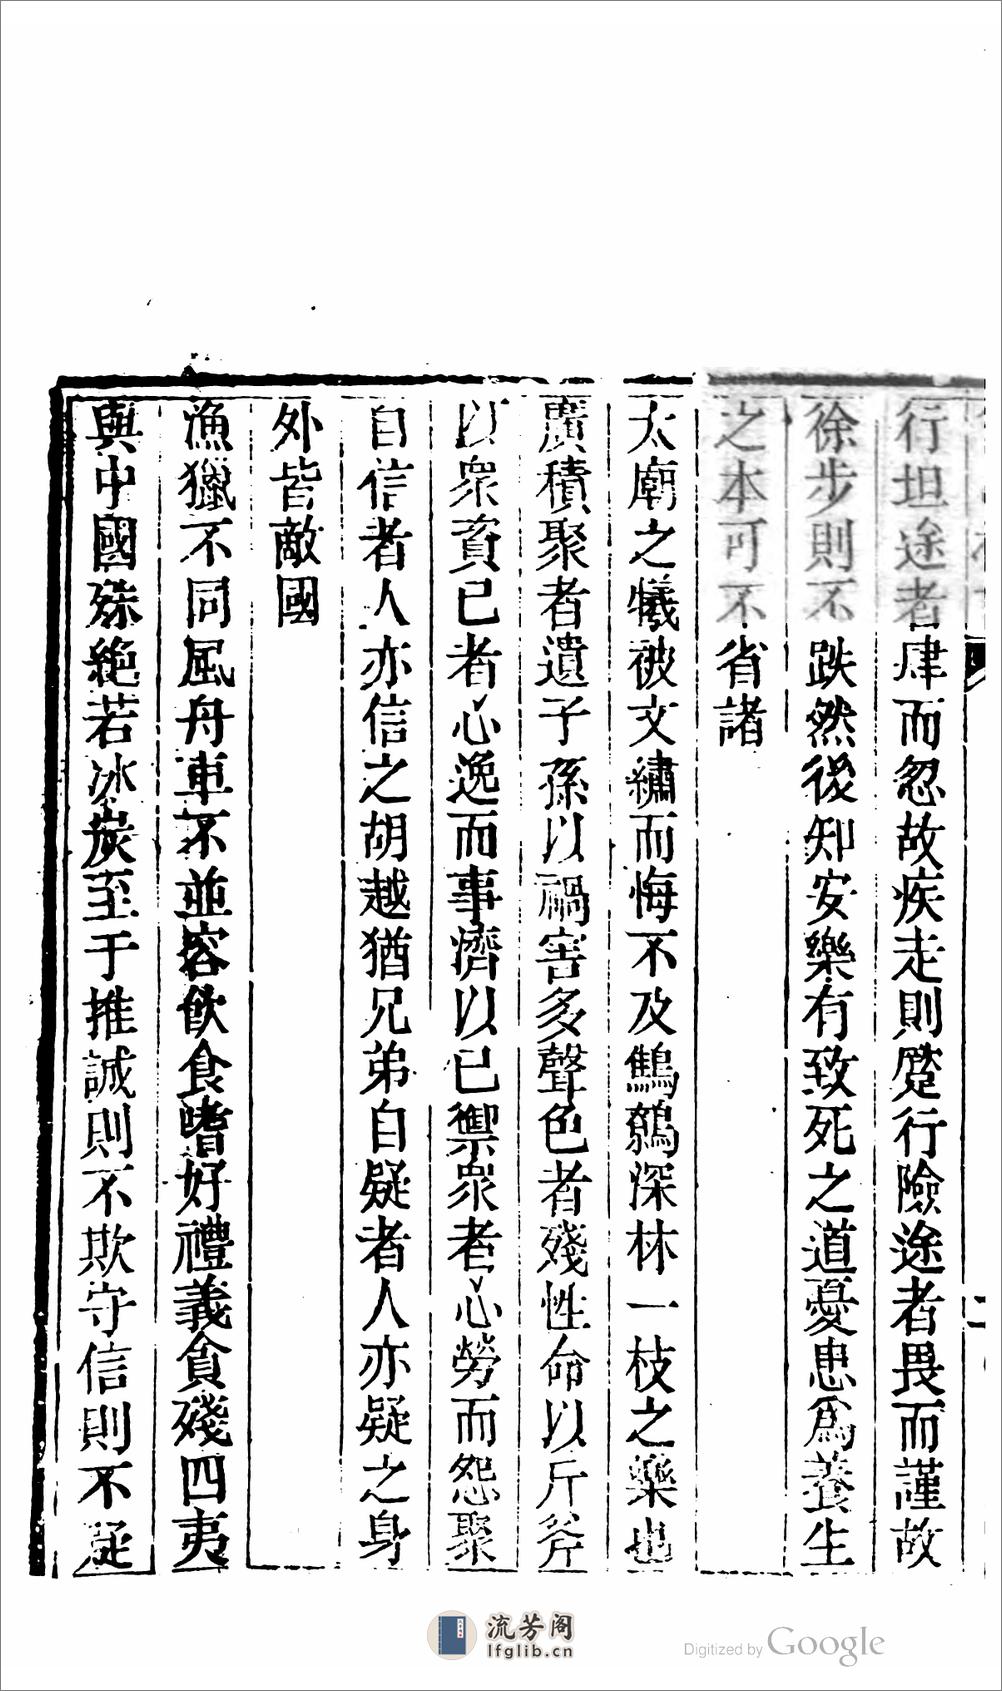 行坦途者肆而忽故疾走則蹷行險途者畏而謹故
徐步則不跌然後知安樂有致死之道憂患爲養生
之本可不省諸
太廟之犧被文繡而悔不及鷦鷯深林一枝之樂也
廣積聚者遺子孫以禍害多聲色者殘性命以斤斧
以衆資己者心逸而事濟以己禦衆者心勞而怨聚
自信者人亦信之胡越猶兄弟自疑者人亦疑之身
外皆敵國
漁獵不同風舟車不並容飲食嗜好禮義貪殘四夷
與中國殊絶若冰炭至于推誠則不欺守信則不疑
流芳阁
lfglib.cn
Digitized by Google